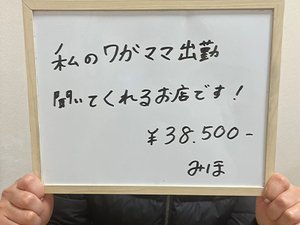 私のワガママ出勤
聞いてくれるお店です!
¥38.500-
みほ